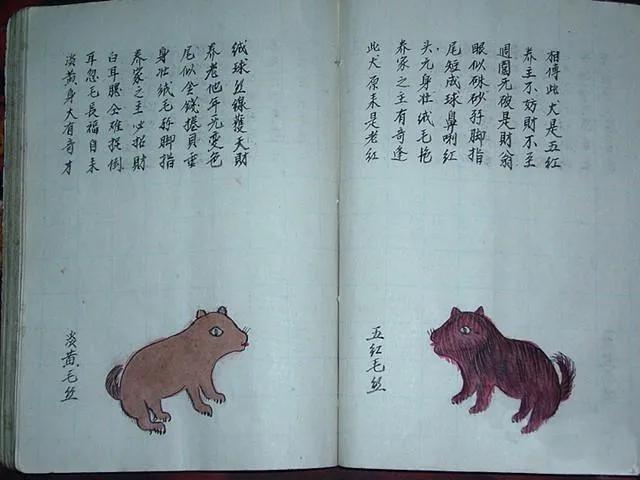 相傳此犬是五紅
养主不妨財不至
週圍无破是財翁
眼似硃砂孖脚指
尾短成球鼻喇紅
头元身壮绒毛艳
养家之主有奇逢
此犬原来是老紅
五红毛丝
绒球丝線獲天財
养老他年元变色
尾似金錢捲貝垂
身壮绒毛孖脚指
养家之主必招財
白耳腮全难捉倒
耳忽毛長福自来
淡黄身犬有奇才
淡黄毛丝